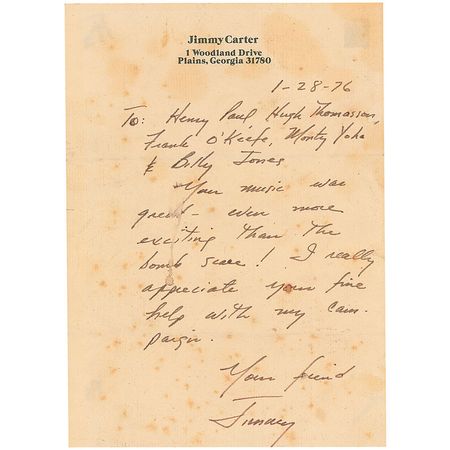 Jimmy Carter
1 Woodland Drive
Plains, Georgia 31780
1-28-76
To: Henry Paul, Hugh Thomasson,
Frank O'Keefe, Monty Yoho
& Billy Jones
Your music was
great - even more
exciting than the
bomb scare! I really
appreciate your fine
help with my cam-
paign.
Your friend
Jimmy